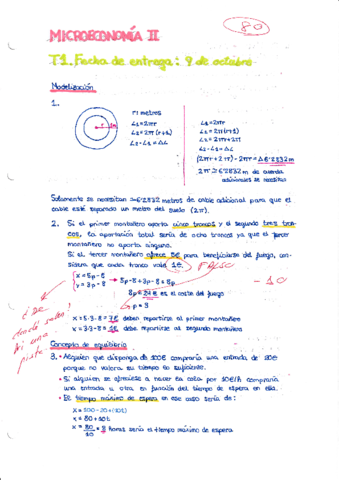 MICROECONOMÍA II
80
T1. Fecha de entrega: 9 de octubre
Modelización
1.
r1 metros
L1 = 2πr
L2 = 2π(r+1)
L2 - L1 = ΔL
L1 = 2πr
L2 = 2π(r+1)
L2 = 2πr + 2π
L2 - L1 = ΔL
(2πr + 2π) - 2πr = Δ6.2832m
2π ≈ 6.2832 m de cuerda
adicionales se necesitan
Solamente se necesitan ≈6.2832 metros de cable adicional para que el
cable esté separado un metro del suelo (2π).
2. Si el primer montañero aporta cinco troncos y el segundo tres tron-
cos, la aportación total sería de ocho troncos ya que el tercer
montañero no aporta ninguno.
Si el tercer montañero ofrece 8€ para beneficiarse del fuego, con-
sidera que cada tronco vale 1€. FALSO
x = 5p - 8
y = 3p - 8
→ 5p - 8 + 3p - 8 = 8p
8p = 24€ es el coste del fuego
p = 3
- 10
x = 5·3 - 8 = 7€ deben repartirse al primer montañero
y = 3·3 - 8 = 1€ debe repartirse al segundo montañero
Concepto de equilibrio
3. • Alguien que disponga de 100€ compraría una entrada de 10€
porque no valora su tiempo lo suficiente.
• Si alguien se ofreciese a hacer la cola por 10€/h compraría
una entrada u otra en función del tiempo de espera en ella.
• El tiempo máximo de espera en ese caso sería de:
x = 100 - 20 + (10t)
x = 80 + 10t
x = 80/10 = 8 horas sería el tiempo máximo de espera